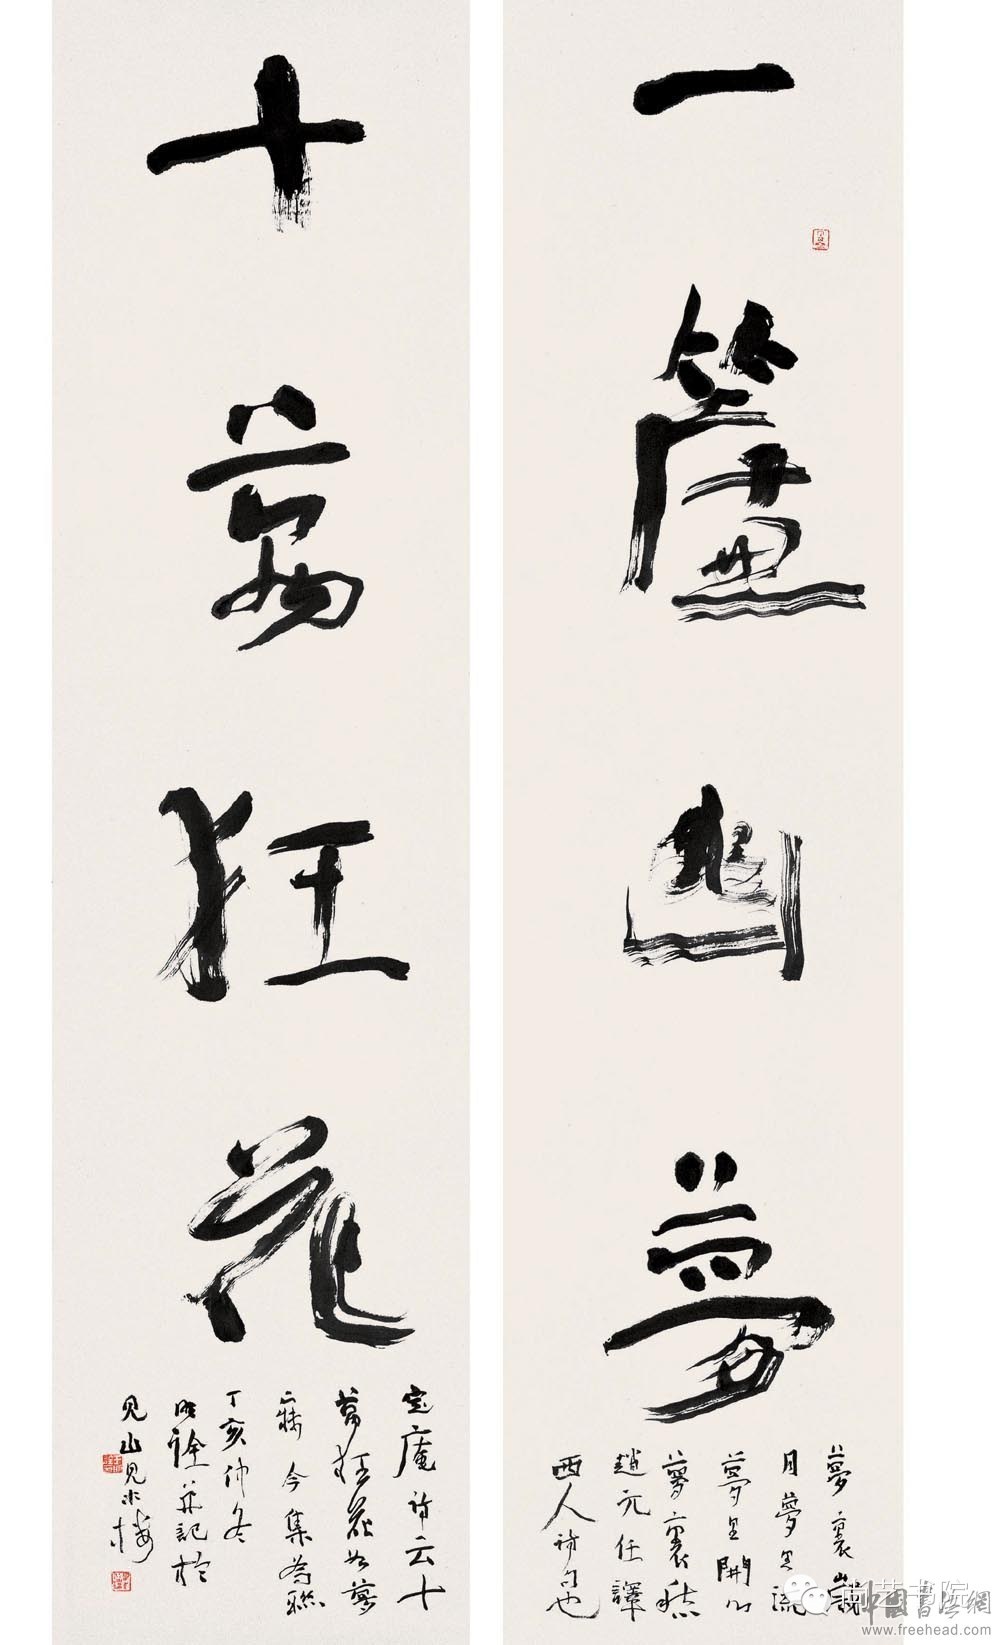 一簾幽夢
夢裏歲
月夢里流
夢里開心
夢裏愁
趙元任譯
西人詩句也
十萬狂花
定庵詩云十
萬狂花如夢
寐今集為聯
丁亥仲冬
明詮并記於
見山見水樓
尚艺书院
中國書法網
www.freehead.com